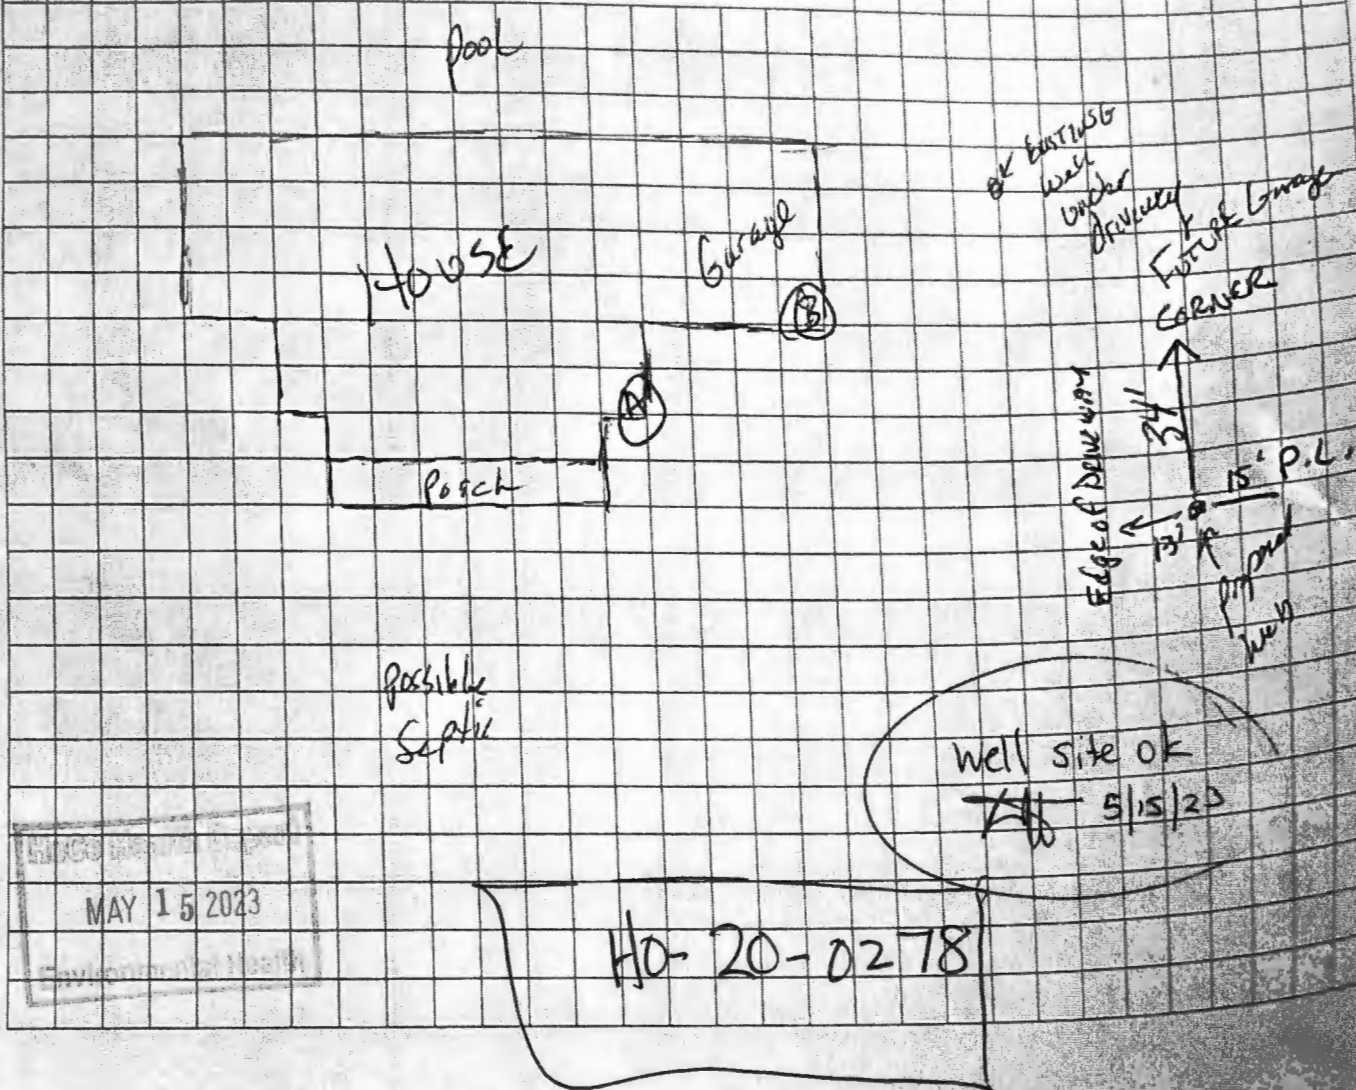 Pool
HOUSE
Garage
B
A
Porch
EXISTING
Well
under
Driveway
Future Garage
CORNER
34'
Edge of Driveway
13'
15' P.L.
proposed
well
Possible
Septic
Well site ok
5/15/23
MAY 15 2023
Environmental Health
HO-20-0278